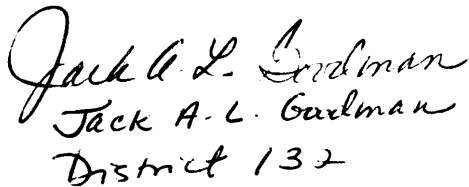 Jack A. L. Goodman
Jack A. L. Goodman
District 132